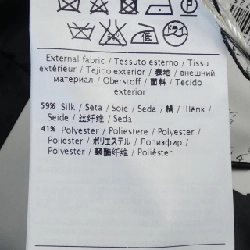 External fabric / Tessuto esterno / Tissu
extérieur / Tejido exterior / 表地 / внешний
материал / Oberstoff / 面料 / Tecido
exterior
59% Silk / Seta / Soie / Seda / 絹 / Шёлк /
Seide / 丝纤维 / Seda
41% Polyester / Poliestere / Polyester /
Poliester / ポリエステル / Полиэфир /
Polyester / 聚酯纤维 / Poliéster